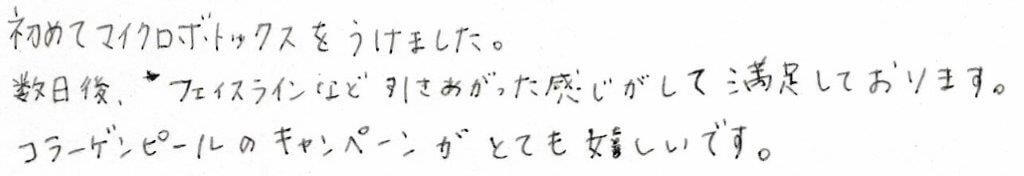 初めてマイクロボトックスをうけました。
数日後、フェイスラインなど引きあがった感じがして満足しております。
コラーゲンピールのキャンペーンがとても嬉しいです。